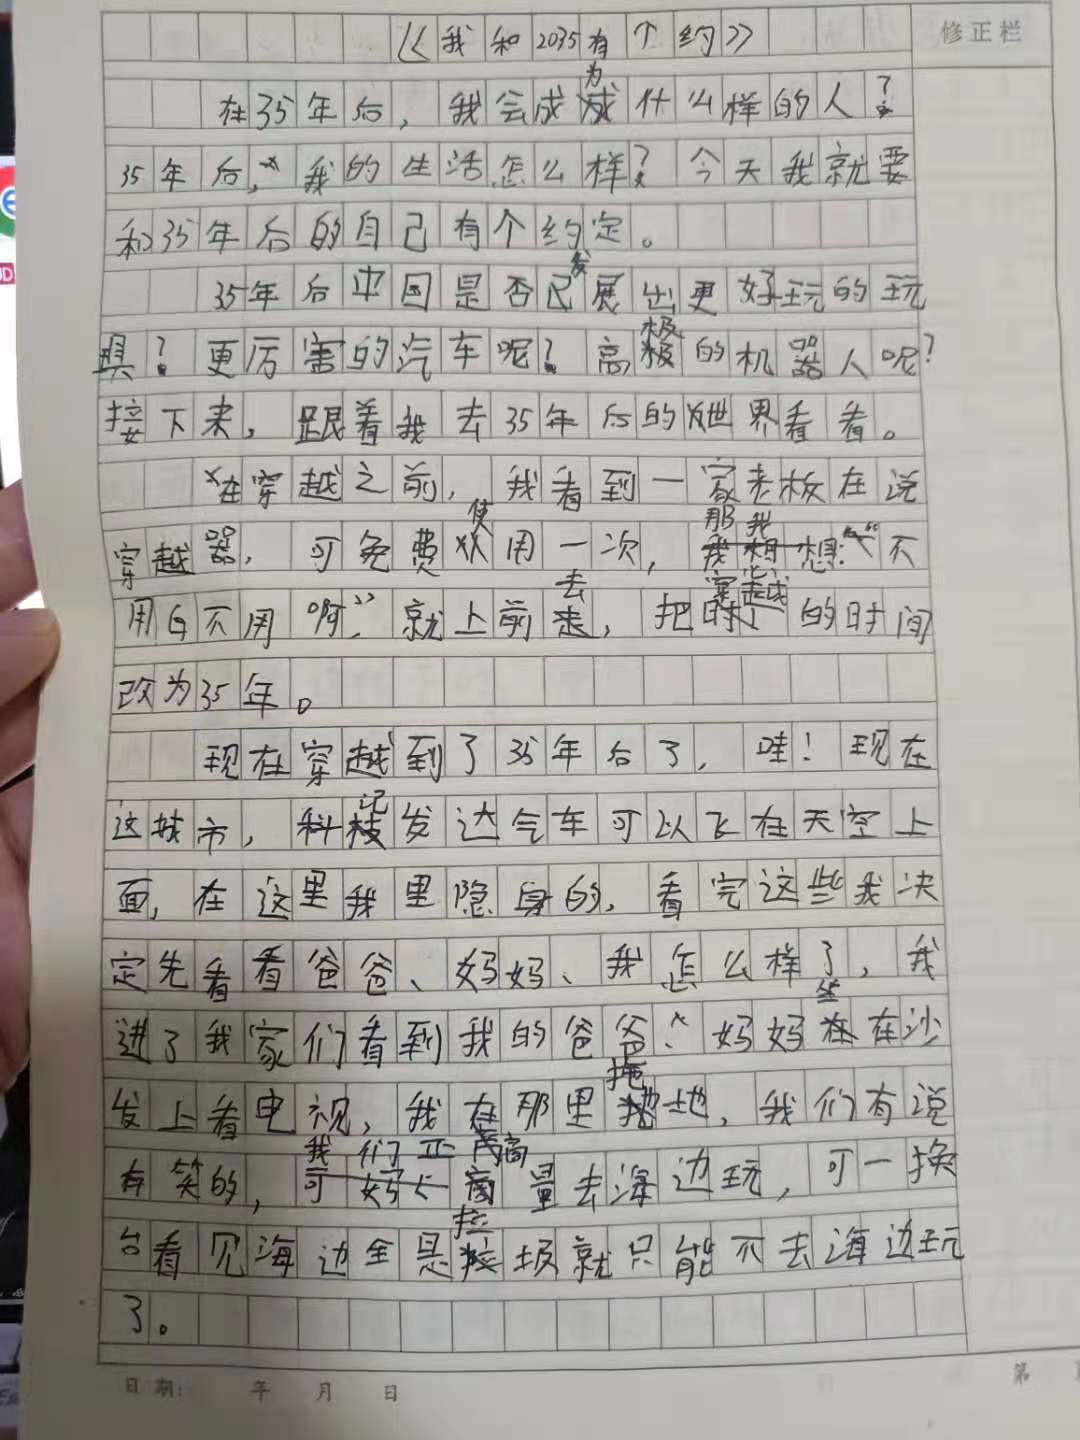 《我和2035有个约》
修正栏
在35年后，我会成为什么样的人？
35年后，我的生活怎么样？今天我就要
和35年后的自己有个约定。
35年后中国是否已发展出更好玩的玩
具？更厉害的汽车呢？高极的机器人呢？
接下来，跟着我去35年后的世界看看。
在穿越之前，我看到一家老板在说
穿越器，可免费使用一次，那我想：“不
用白不用啊”就上前去，把穿越的时间
改为35年。
现在穿越到了35年后了，哇！现在
这城市，科记发达汽车可以飞在天空上
面，在这里我里隐身的，看完这些我决
定先看看爸爸、妈妈、我怎么样了，我
进了我家们看到我的爸爸、妈妈坐在沙
发上看电视，我在那里拖地，我们有说
有笑的，我们正商量去海边玩，可一换
台看见海边全是垃圾就只能不去海边玩
了。
日期： 年 月 日
第